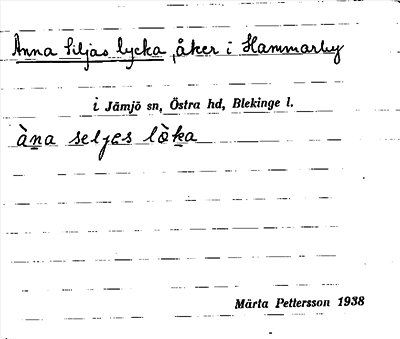 Anna Siljas lycka, åker i Hammarby
i Jämjö sn, Östra hd, Blekinge l.
àna seljes lòka
Märta Pettersson 1938